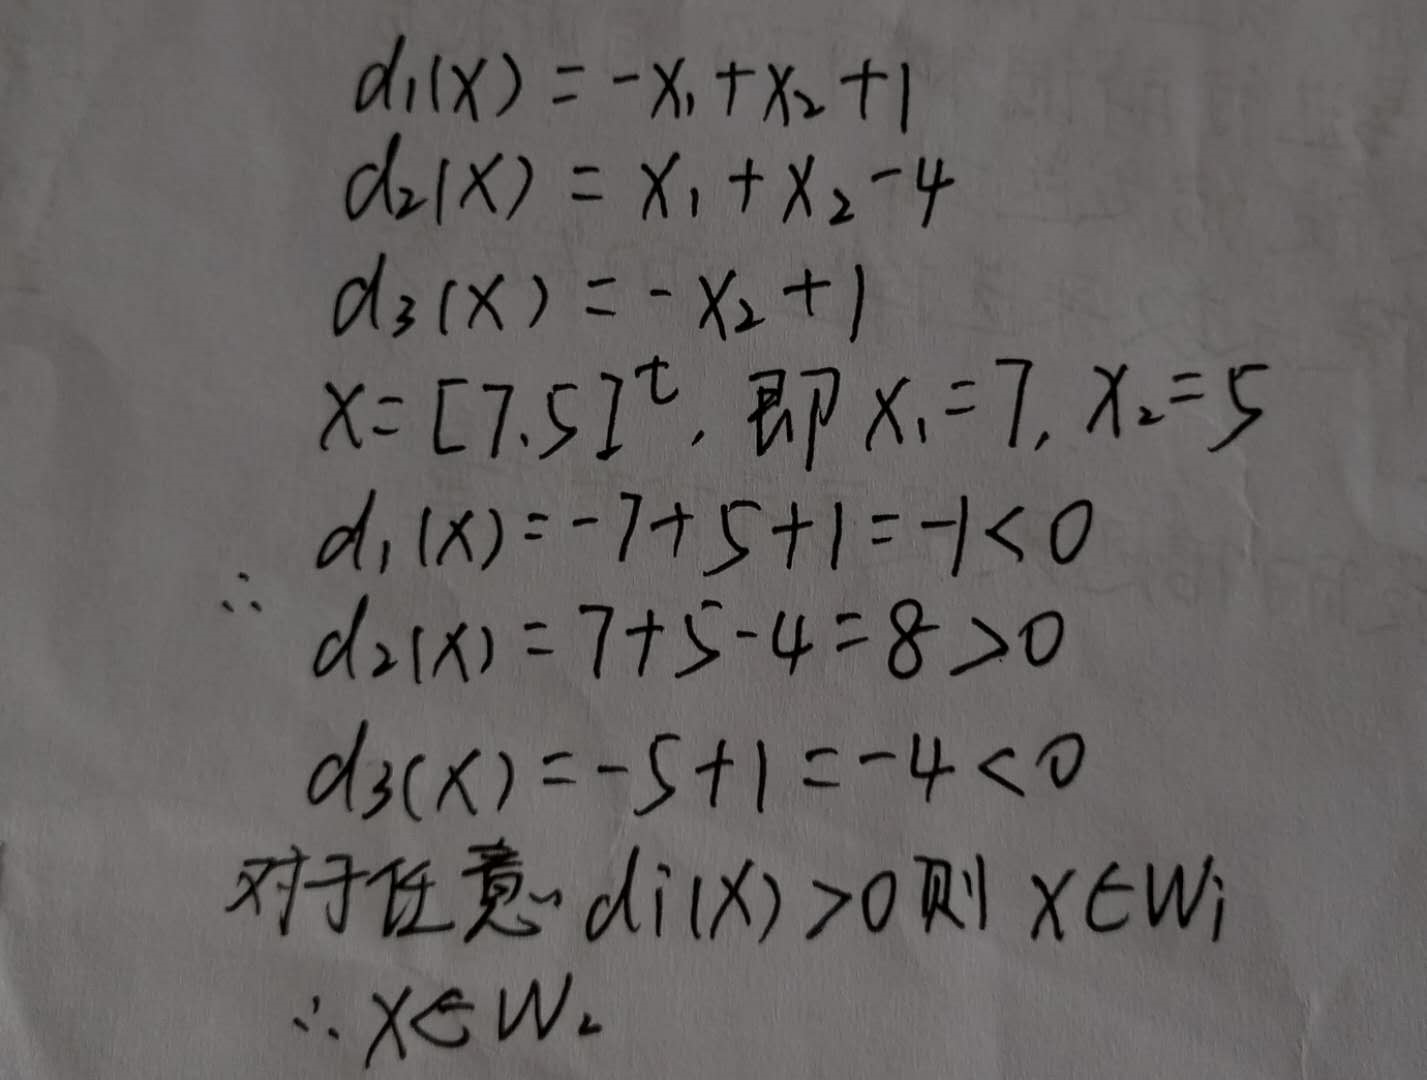 d₁(X) = -X₁+X₂+1
d₂(X) = X₁+X₂-4
d₃(X) = -X₂+1
X=[7.5]ᵗ, 即 X₁=7, X₂=5
d₁(X)=-7+5+1=-1<0
∴ d₂(X)=7+5-4=8>0
d₃(X)=-5+1=-4<0
对于任意 di(X)>0则 X∈Wi
∴X∈W₂